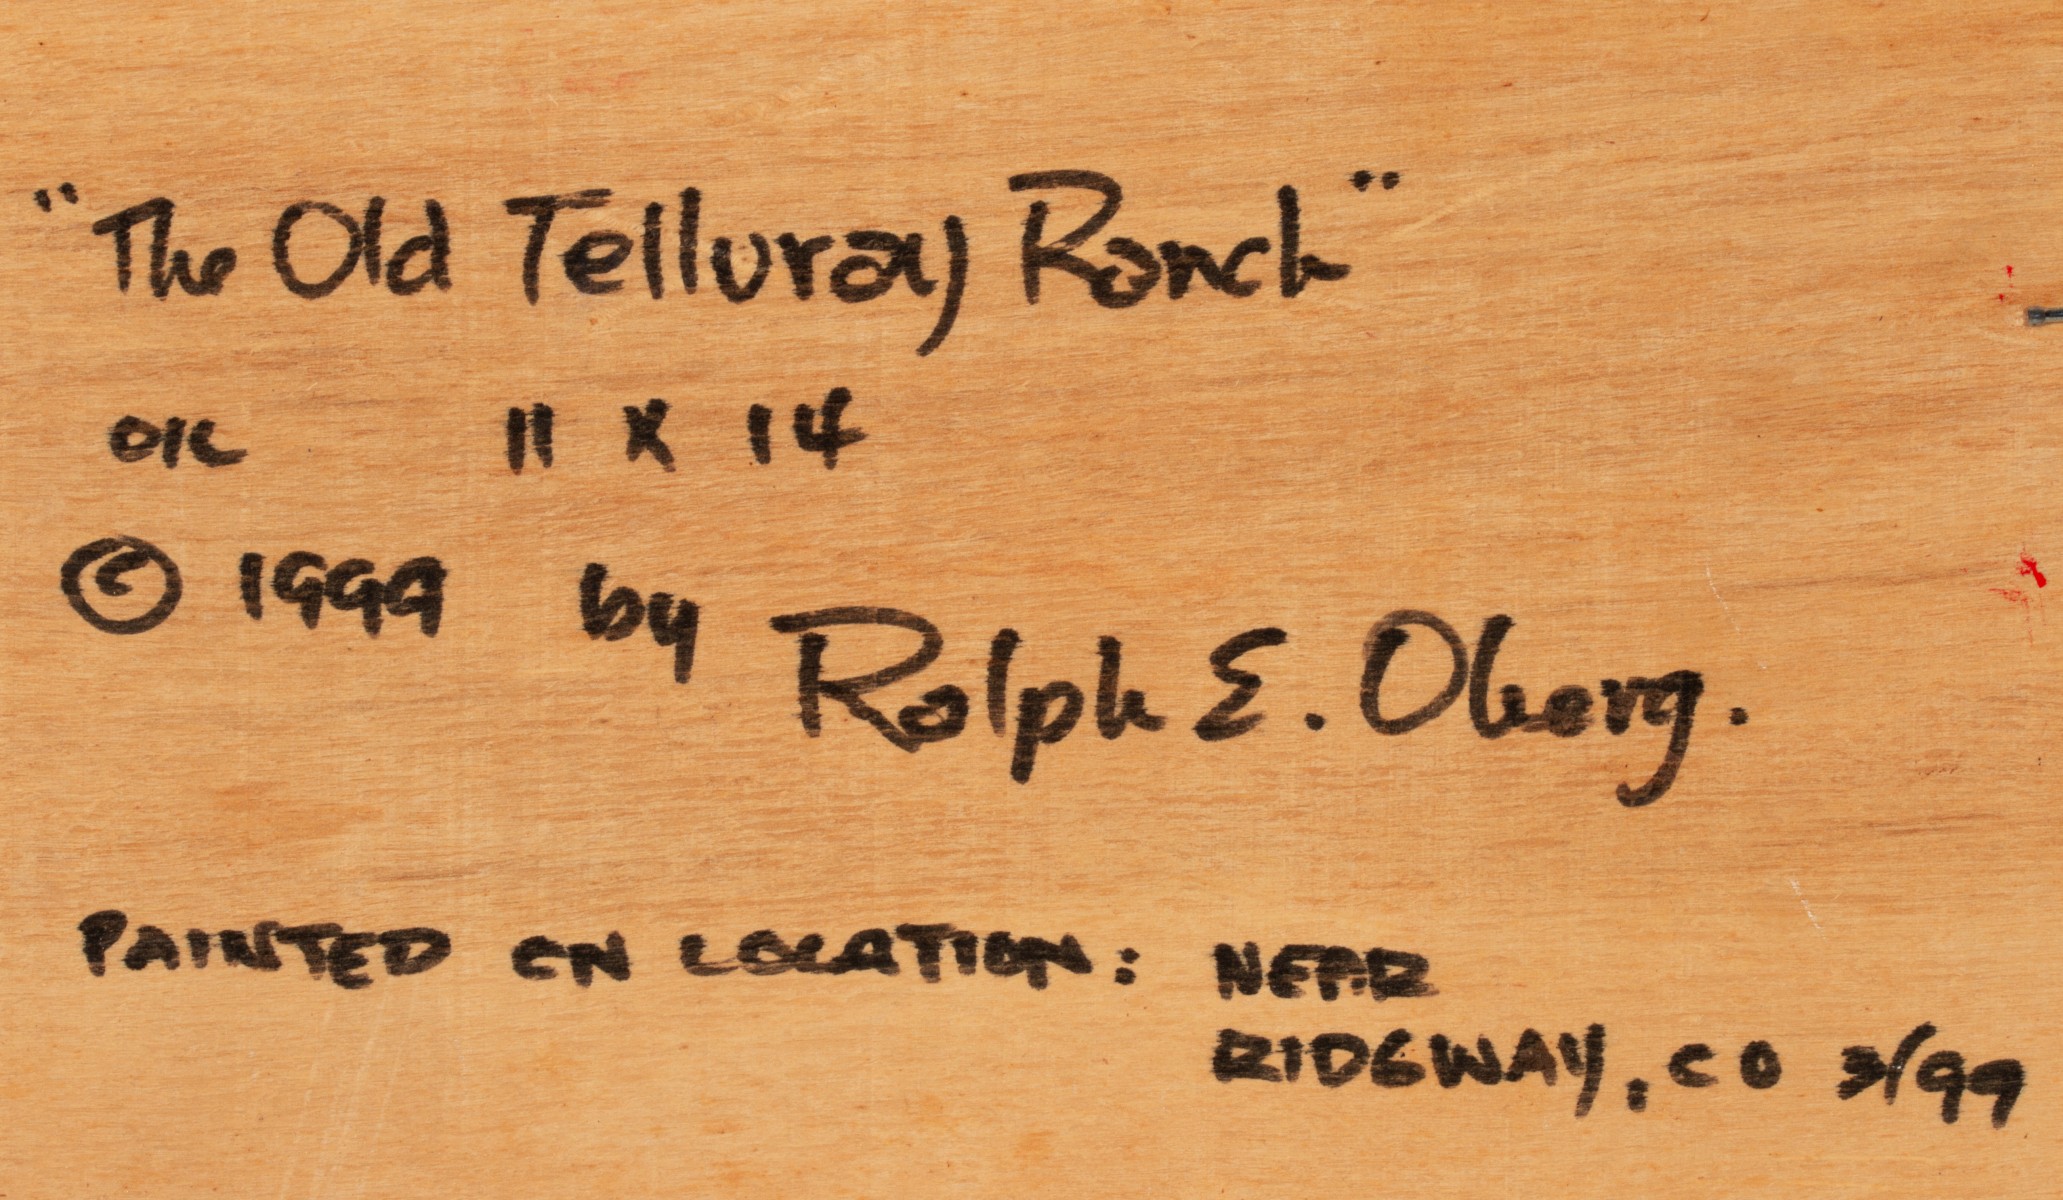 "The Old Telluray Ranch"
OIL 11 X 14
© 1999 by Ralph E. Oberg.
PAINTED ON LOCATION: NEAR
RIDGWAY, CO 3/99